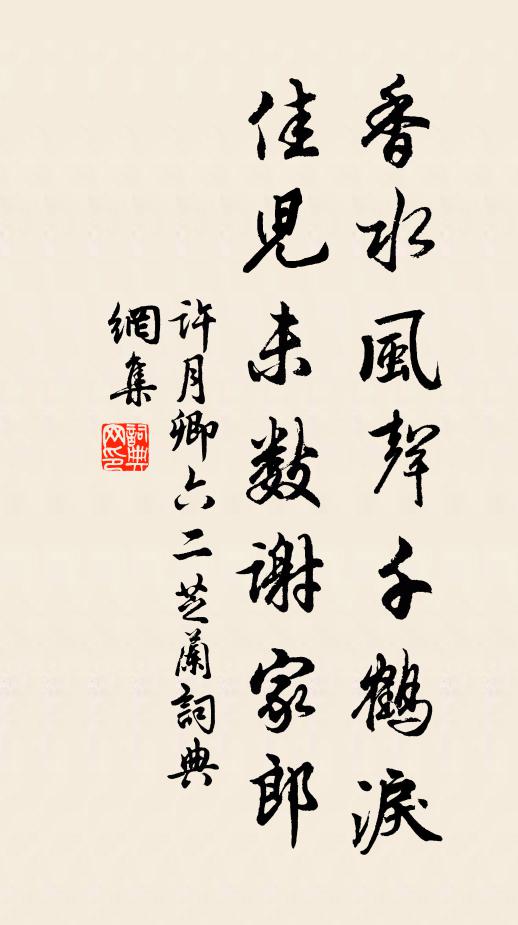 香水風聲千鶴淚
佳兒未數謝家郎
許月卿六二芝蘭詞典
網集
詞典网印